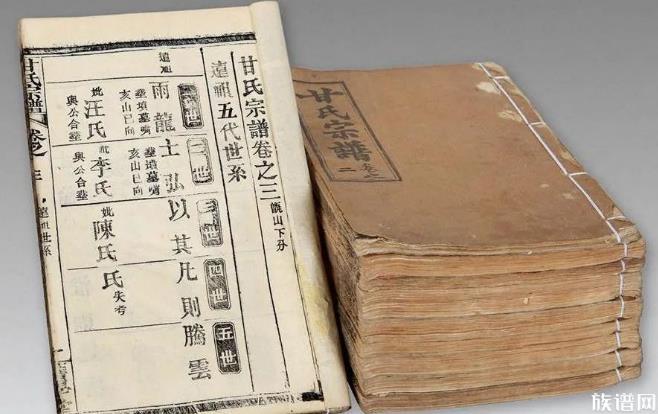 甘氏宗譜卷之三
遠祖五代世系
一世
二世
三世
四世
五世
遠祖
雨龍
士弘
以其
凡則
騰雲
塋墳墓嘴
亥山巳向
塋墳墓嘴
亥山巳向
妣汪氏
與公合塋
妣李氏
與公合塋
妣陳氏
氏失考
甘氏宗譜
卷之三
遠祖世系
甘氏宗譜
族谱网